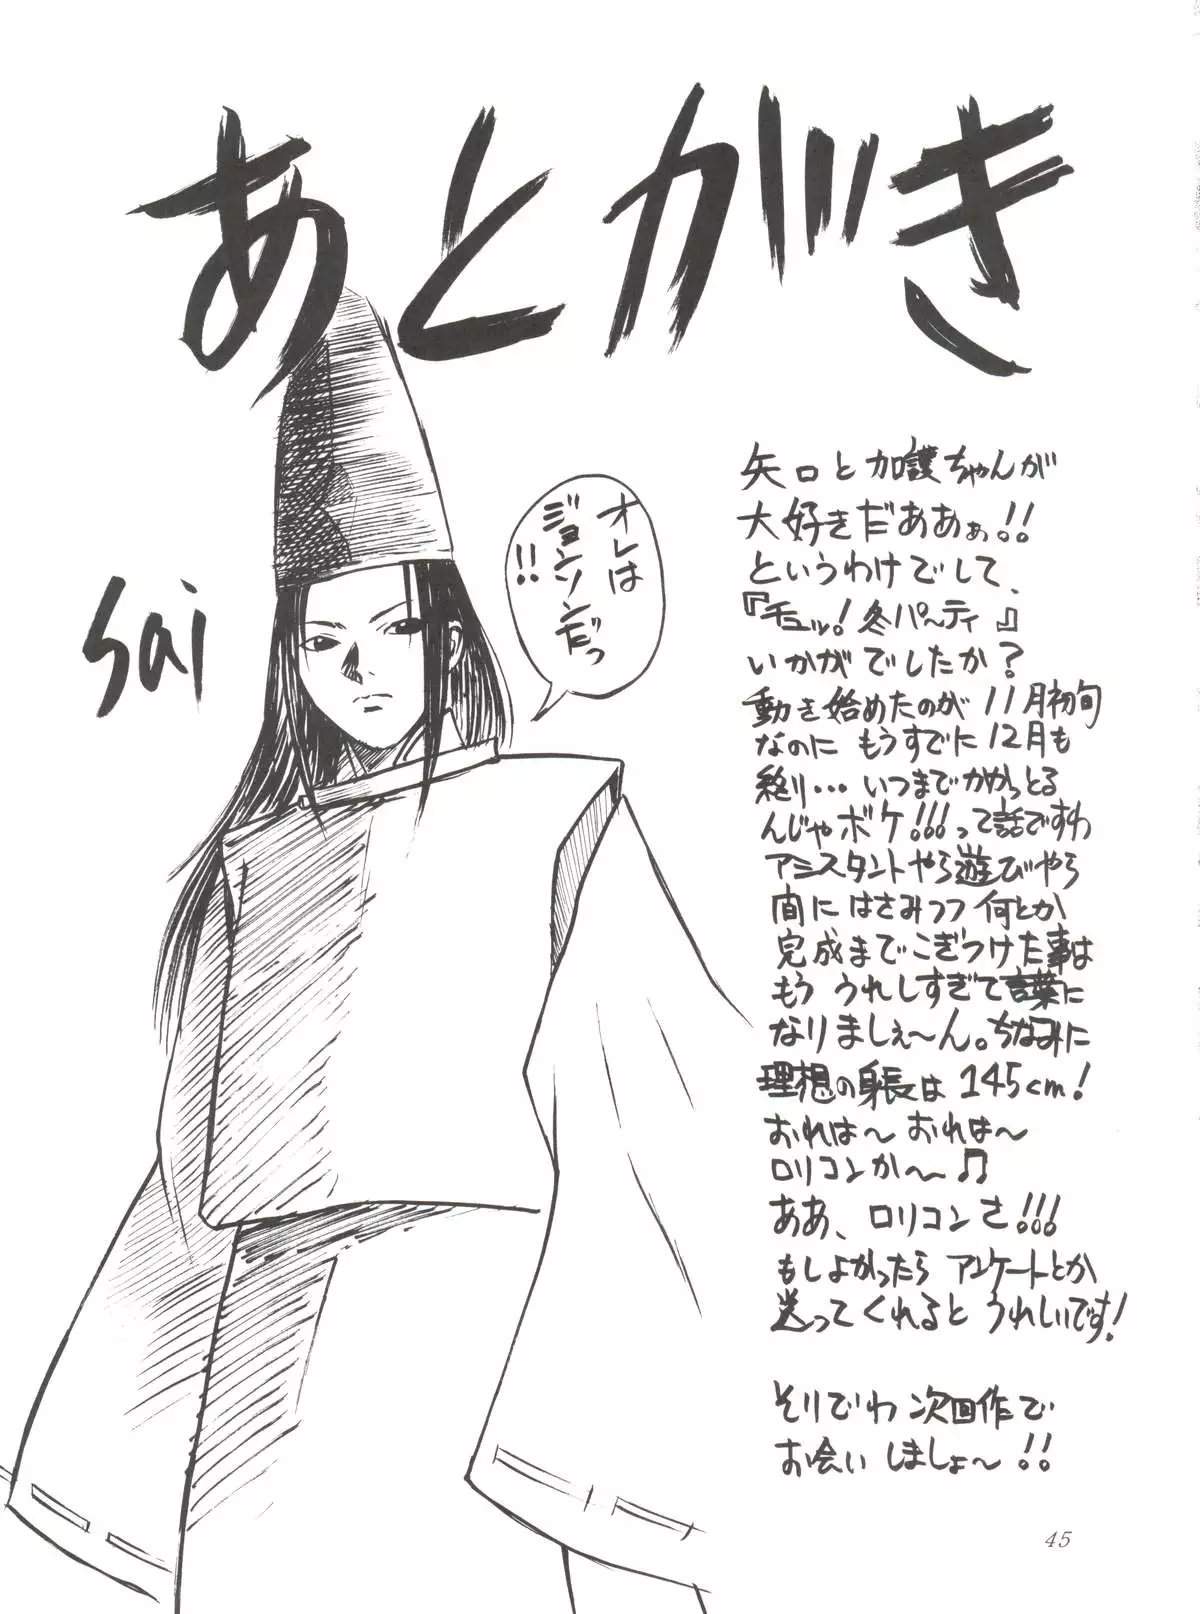 あとがき
sai
オレは
ジョンソンだっ
!!
矢口と加護ちゃんが
大好きだああぁ!!
というわけでして、
『チュッ!冬パ～ティ』
いかがでしたか?
動き始めたのが11月初旬
なのに もうすでに12月も
終り… いつまでかかっとる
んじゃボケ!!!って話ですわ
アシスタントやら遊びやら
間に はさみつつ 何とか
完成までこぎつけた事は
もう うれしすぎて言葉に
なりましぇ～ん。ちなみに
理想の身長は145cm!
おれは～ おれは～
ロリコンか～♫
ああ、ロリコンさ!!!
もしよかったら アンケートとか
送ってくれると うれしいです!
そりでわ 次回作で
お会い しましょ～!!
45